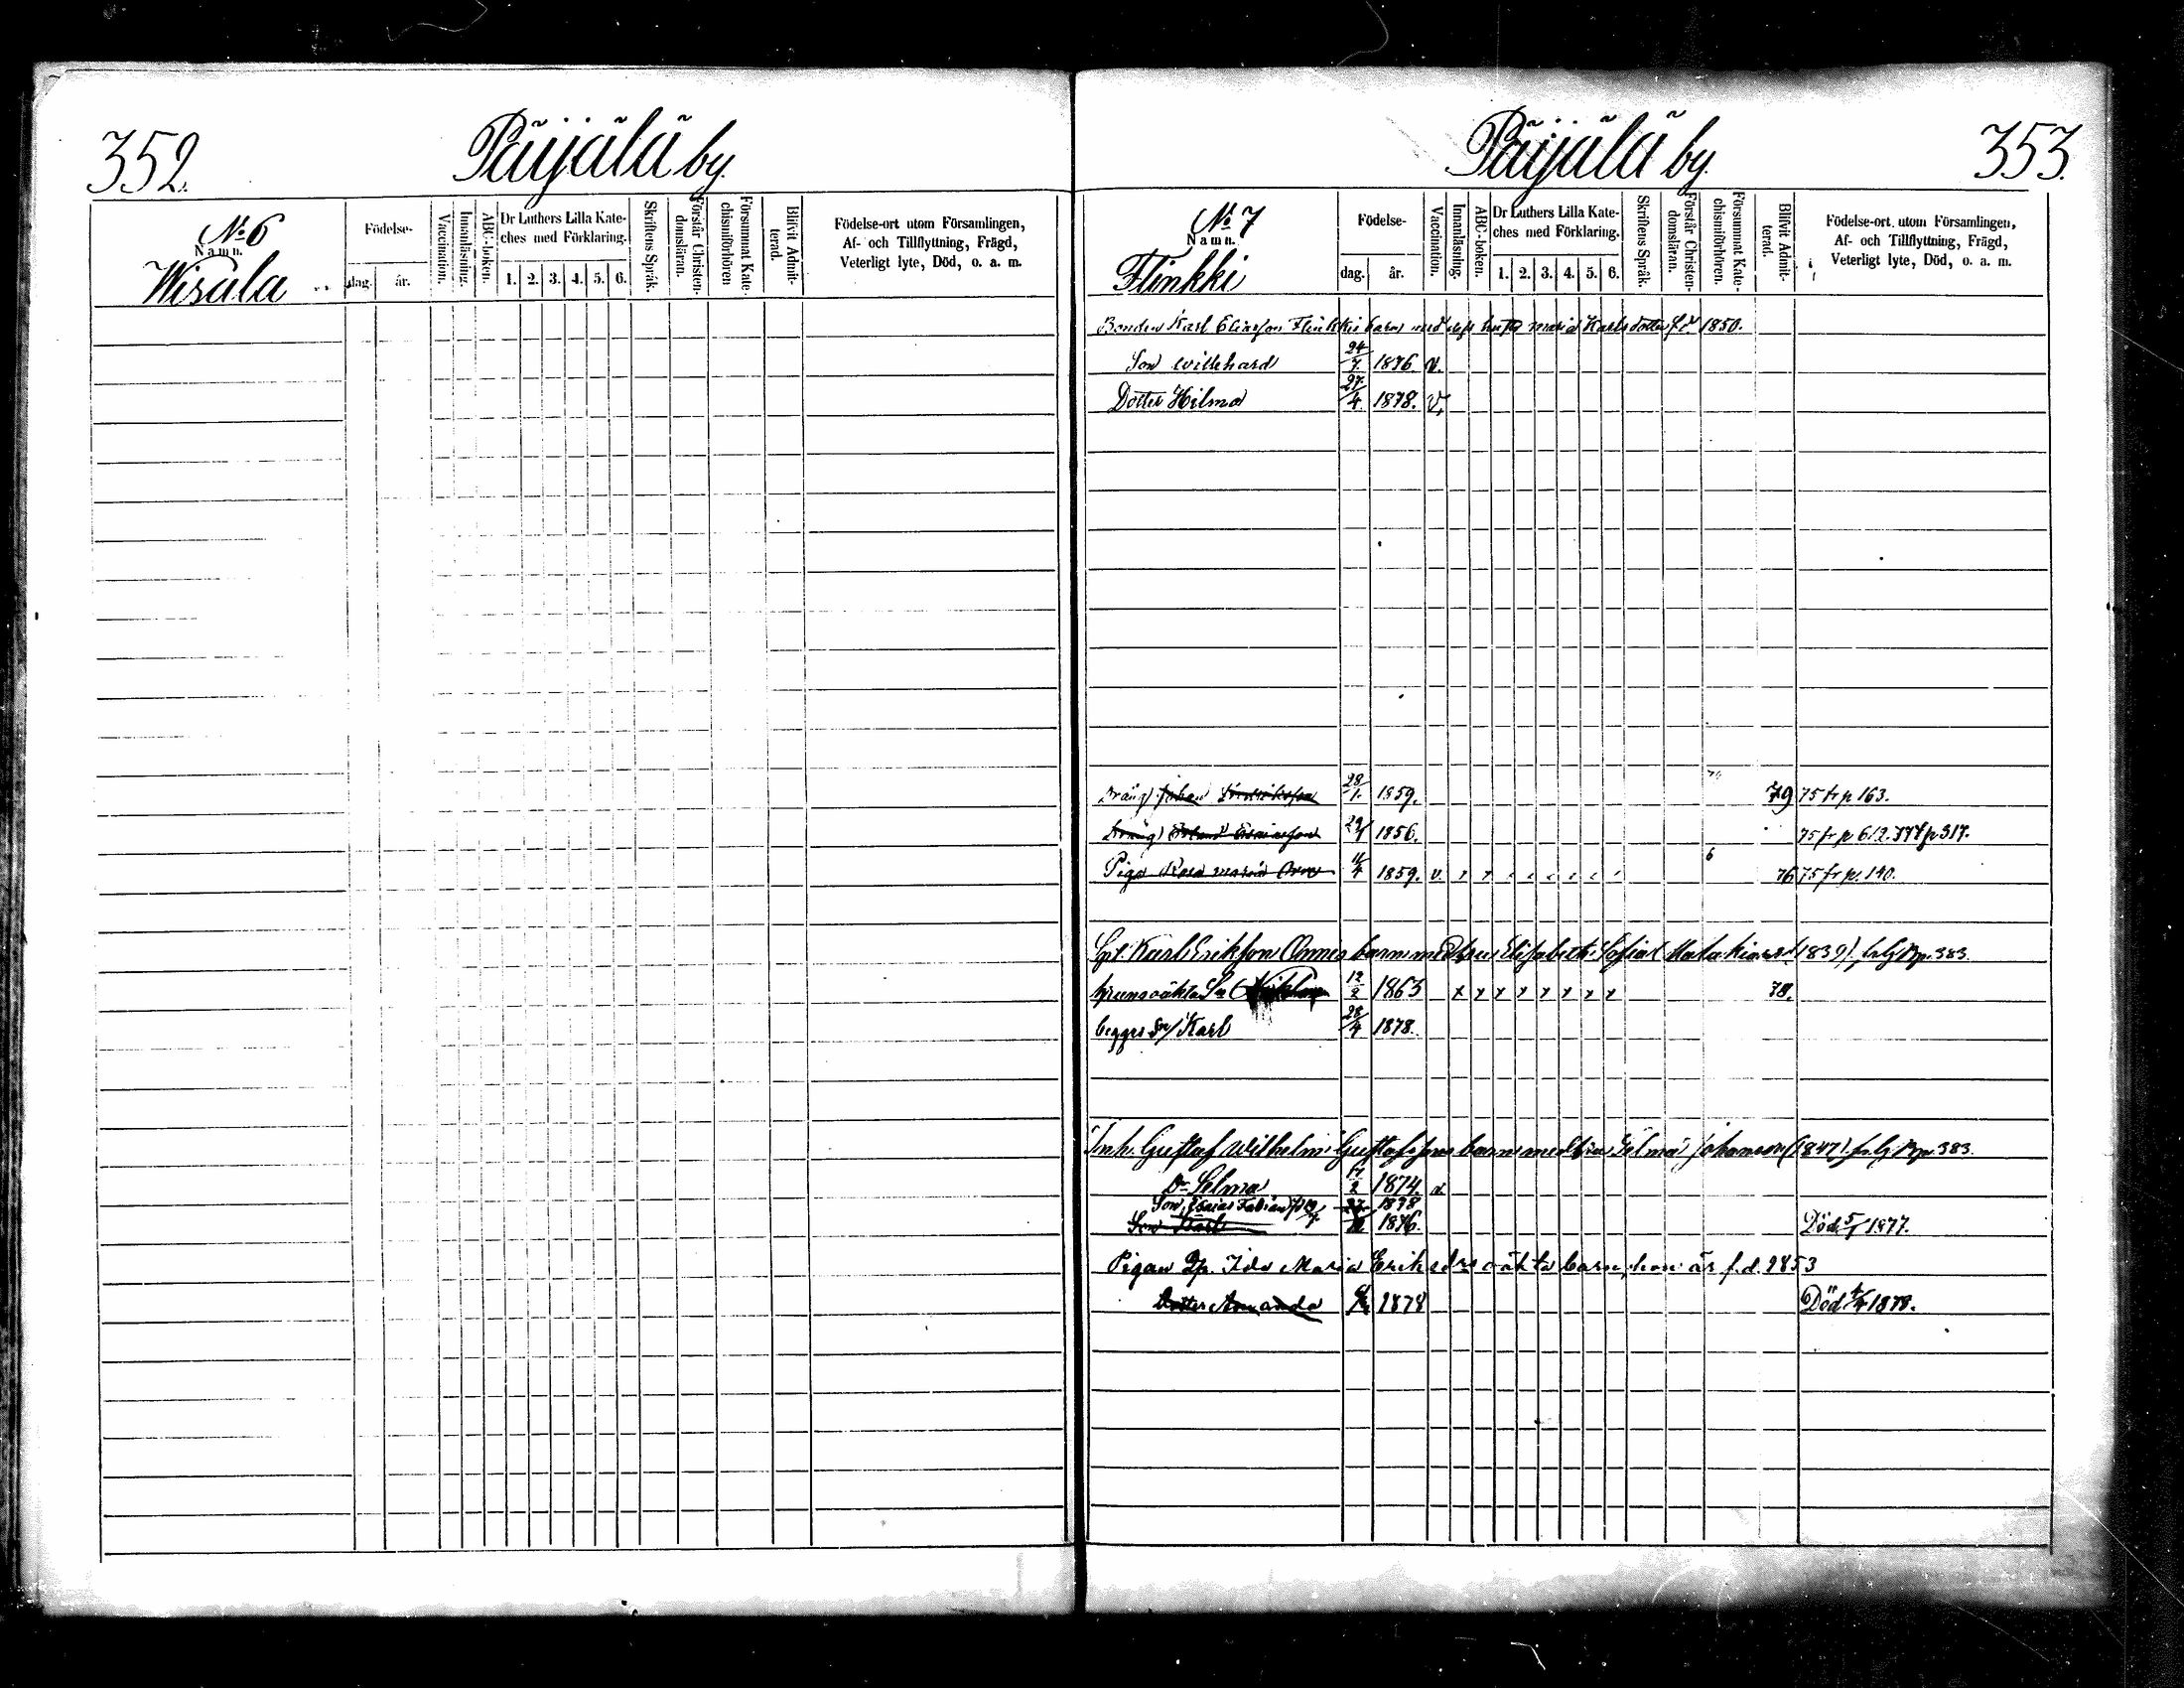 352.
Päijälä by.
No 6
Namn.
Wisala
Födelse-
dag.
år.
Vaccination.
Innanläsning.
ABC-boken.
Dr Luthers Lilla Kate-
ches med Förklaring.
1. 2. 3. 4. 5. 6.
Skriftens Språk.
Förstår Christen-
domsläran.
Försummat Kate-
chismiförhören
Blifvit Admit-
terad.
Födelse-ort utom Församlingen,
Af- och Tillflyttning, Frägd,
Veterligt lyte, Död, o. a. m.
Päijälä by.
353.
No 7
Namn.
Flinkki
Födelse-
dag.
år.
Vaccination.
Innanläsning.
ABC-boken.
Dr Luthers Lilla Kate-
ches med Förklaring.
1. 2. 3. 4. 5. 6.
Skriftens Språk.
Förstår Christen-
domsläran.
Försummat Kate-
chismiförhören.
Blifvit Admit-
terad.
Födelse-ort utom Församlingen,
Af- och Tillflyttning, Frägd,
Veterligt lyte, Död, o. a. m.
Bonden Karl Eliasson Flinkkis barn med hustr maria Karlsdotter f. d 1850.
Son Willehard 24/7. 1876 v.
Dotter Hilma 27/4. 1878. v.
Dräng Johan Fredriksson 28/1. 1859. 79 75 fr p 163.
Dräng 1856. 75 fr p 612. 77 t p 317.
Piga Rosa maria 11/4 1859. v. 6 76 75 fr p. 140.
Karl Eriksson barn med hru Elisabeth Sofia (1839) p. 383.
12/2 1863 x x x x x x x x 78.
begges Sn/ Karl 28/4 1878.
Inh. Gustaf Wilhelm Gustafssons barn med hru Johansson (1847) p. 383.
Dr Selma 7/2 1874 v
Son, Esaias Fabian 1878
Son Karl 1876. Död 5/1 1877.
Pigan Ida Maria Eriksdrs oäkta barn, hon är f.d. 1853
Dotter Amanda 1878 Död 1878.